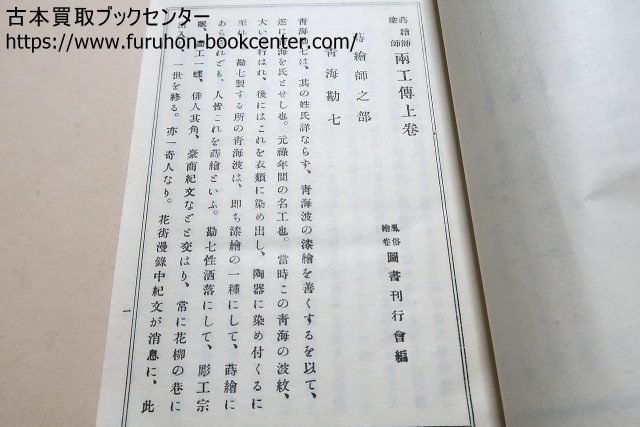 古本買取ブックセンター
https://www.furuhon-bookcenter.com/
蒔繪師
塗師
兩工傳上卷
風俗
繪卷
圖書刊行會編
蒔繪師之部
靑海勘七
靑海勘七は、其の姓氏詳ならず、靑海波の漆繪を善くするを以て、
遂に靑海を氏とせし也。元祿年間の名工也。當時この靑海の波紋、
大いに行はれ、後にはこれを衣類に染め出し、陶器に染め付くるに
至れ 勘七製する所の靑海波は、卽ち漆繪の一種にして、蒔繪に
あらざれども、人皆これを蒔繪といふ。勘七性洒落にして、彫工宗
珉、畫工一蝶、俳人其角、豪商紀文などと交はり、常に花柳の巷に
出入 一世を終る。亦一奇人なり。花街漫錄中紀文が消息に、此
一